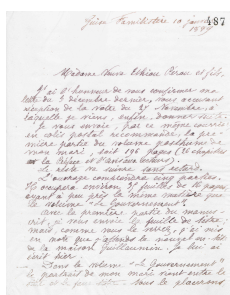 487
Guise Familistère 10 janvier
Madame Veuve Ethiou Pérou et fils,
J'ai l'honneur de vous confirmer ma
lettre du 3 décembre dernier, vous accusant
réception de la vôtre du 27 Novembre à
laquelle je viens, enfin, donner suite.
Je vous envoie, par ce même courrier
en colis postal recommandé, la pre-
mière partie du volume posthume de
mon mari, soit 196 pages (26 chapitres
Le reste va suivre sans retard.
L'ouvrage comprendra cinq parties.
Il occupera environ feuilles de 16 pages
ayant à peu près la même matière que
le volume "Le Gouvernement".
Avec la première partie du manus-
crit, je vous envoie les feuilles de
mari, comme vous le verrez, j'ai mis
en note que j'attends le
de la maison Guillaumin, je lui ai
écrit hier.
Dans le volume "Le Gouvernement"
le portrait de mon mari vient entre le
et le titre. Nous le placerons